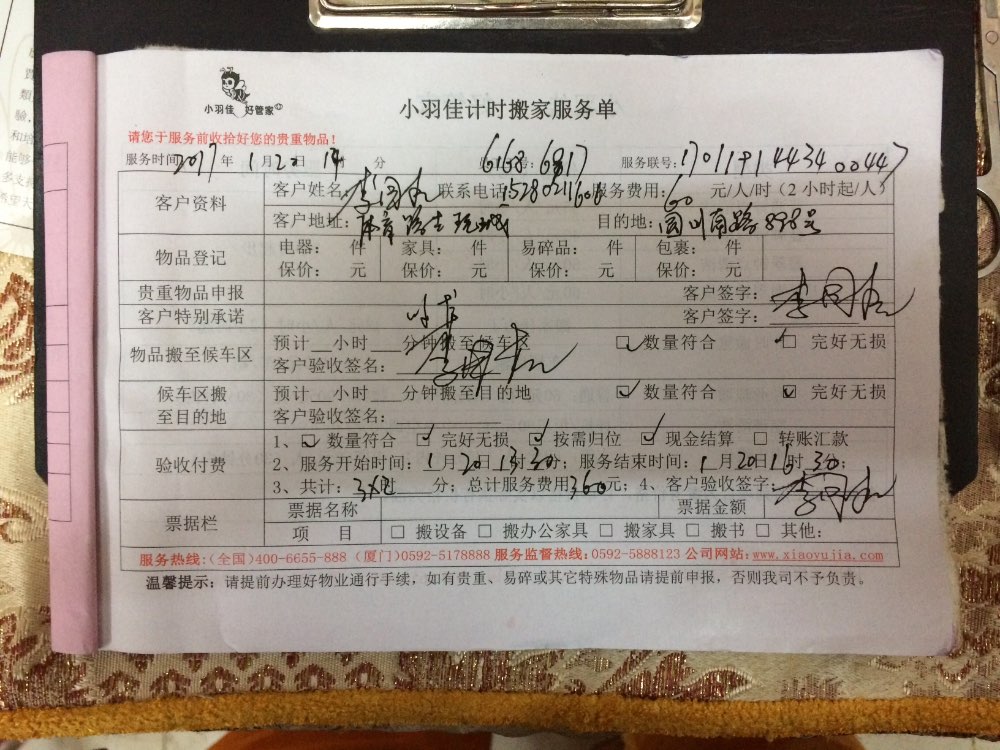 小羽佳 好管家
小羽佳计时搬家服务单
请您于服务前收拾好您的贵重物品！
服务时间 2017年 1月20 时 分 6168 6817 服务联号：
客户资料 客户姓名： 联系电话 服务费用：60 元/人/时（2小时起/人）
客户地址：体育路 目的地： 南路898号
物品登记 电器： 件 家具： 件 易碎品： 件 包裹： 件
保价： 元 保价： 元 保价： 元 保价： 元
贵重物品申报 客户签字：
客户特别承诺 客户签字：
物品搬至候车区 预计__小时___分钟搬至候车区 数量符合 完好无损
客户验收签名：
候车区搬至目的地 预计__小时___分钟搬至目的地 数量符合 完好无损
客户验收签名：
验收付费 1、 数量符合 完好无损 按需归位 现金结算 转账汇款
2、服务开始时间：1月20日13时30分；服务结束时间：1月20日16时30分；
3、共计：3 时 分；总计服务费用360元；4、客户验收签字：
票据栏 票据名称 票据金额
项 目 搬设备 搬办公家具 搬家具 搬书 其他：
服务热线：(全国)400-6655-888 (厦门)0592-5178888 服务监督热线：0592-5888123 公司网站：www.xiaoyujia.com
温馨提示：请提前办理好物业通行手续，如有贵重、易碎或其它特殊物品请提前申报，否则我司不予负责。